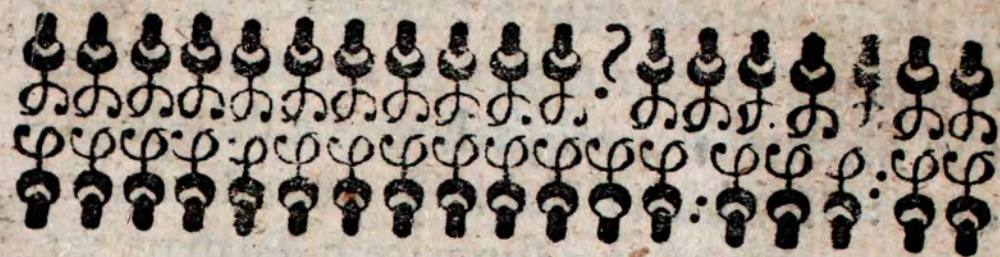 ?
: :